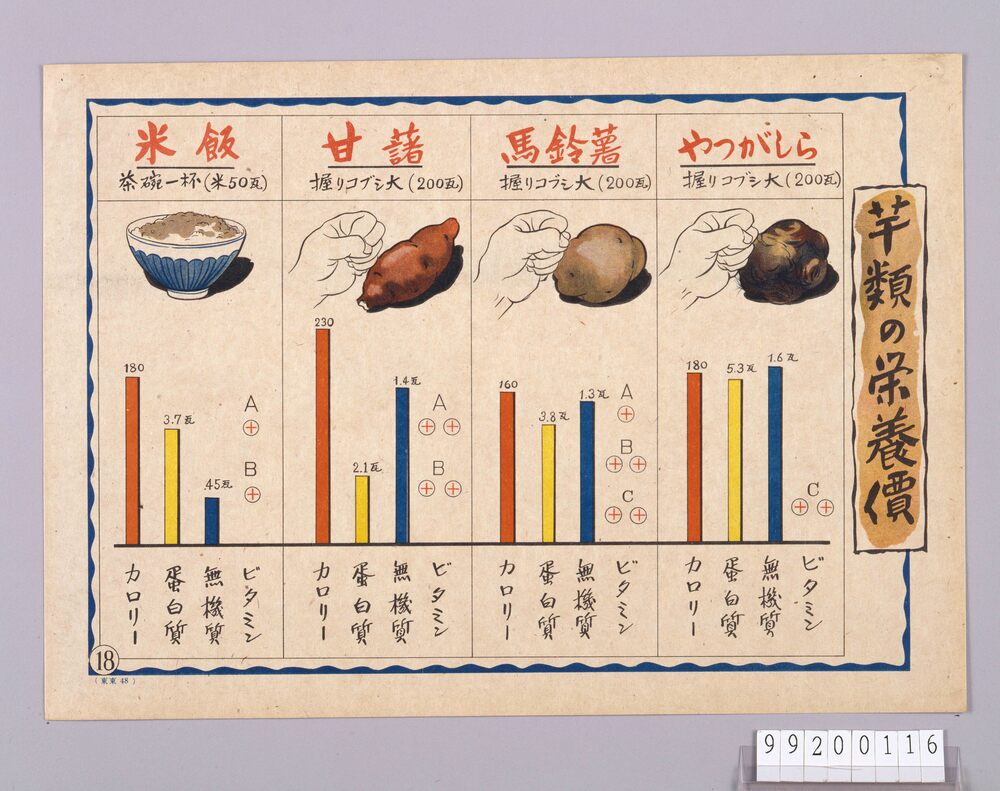 芋類の栄養價
米飯
茶碗一杯(米50瓦)
180
3.7瓦
.45瓦
A
B
カロリー
蛋白質
無機質
ビタミン
甘藷
握りコブシ大(200瓦)
230
2.1瓦
1.4瓦
A
B
カロリー
蛋白質
無機質
ビタミン
馬鈴薯
握りコブシ大(200瓦)
160
3.8瓦
1.3瓦
A
B
C
カロリー
蛋白質
無機質
ビタミン
やつがしら
握りコブシ大(200瓦)
180
5.3瓦
1.6瓦
C
カロリー
蛋白質
無機質
ビタミン
18
(東東 48)
99200116